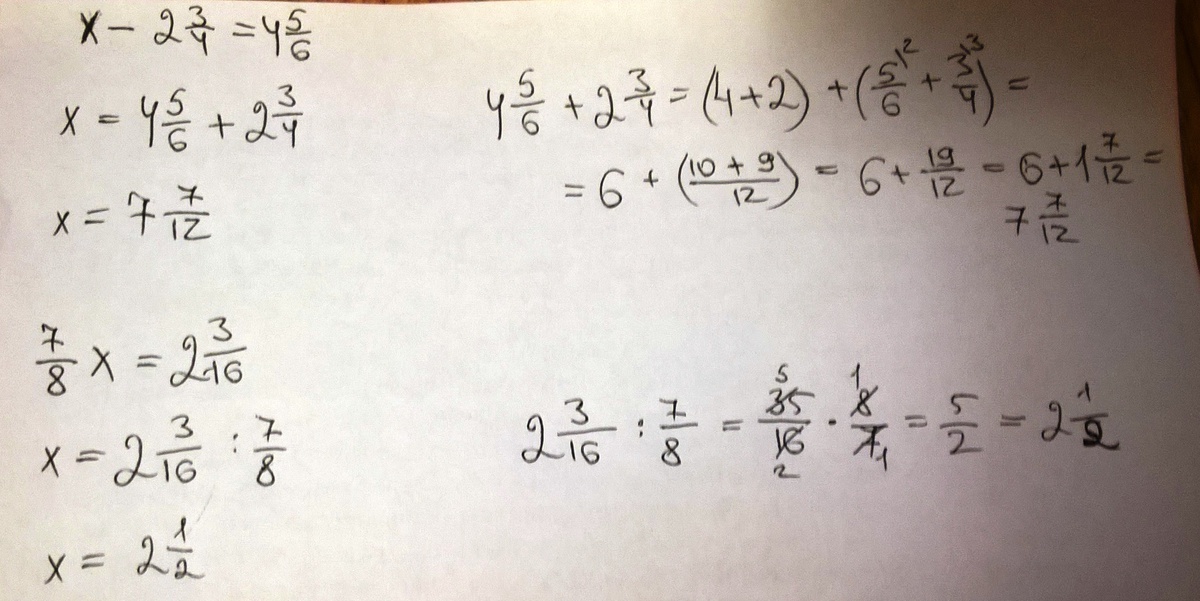 x - 2 3/4 = 4 5/6
x = 4 5/6 + 2 3/4
x = 7 7/12
4 5/6 + 2 3/4 = (4+2) + (5/6 \2 + 3/4 \3) =
= 6 + (10 + 9/12) = 6 + 19/12 = 6 + 1 7/12 =
7 7/12
7/8 x = 2 3/16
x = 2 3/16 : 7/8
x = 2 1/2
2 3/16 : 7/8 = 35 5/16 2 · 8 1/7 1 = 5/2 = 2 1/2